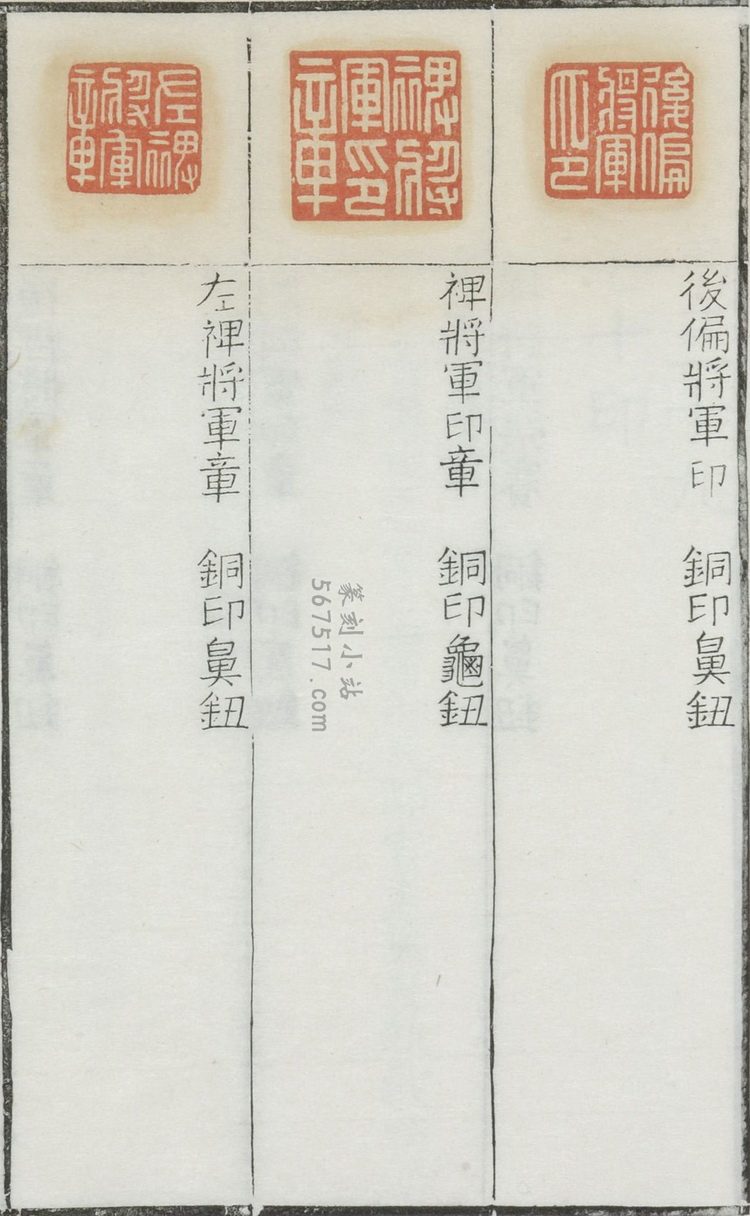 後偏將軍印
後偏將軍印 銅印鼻鈕
裨將軍印章
裨將軍印章 銅印龜鈕
左裨將軍章
左裨將軍章 銅印鼻鈕
篆刻小站
567517.com